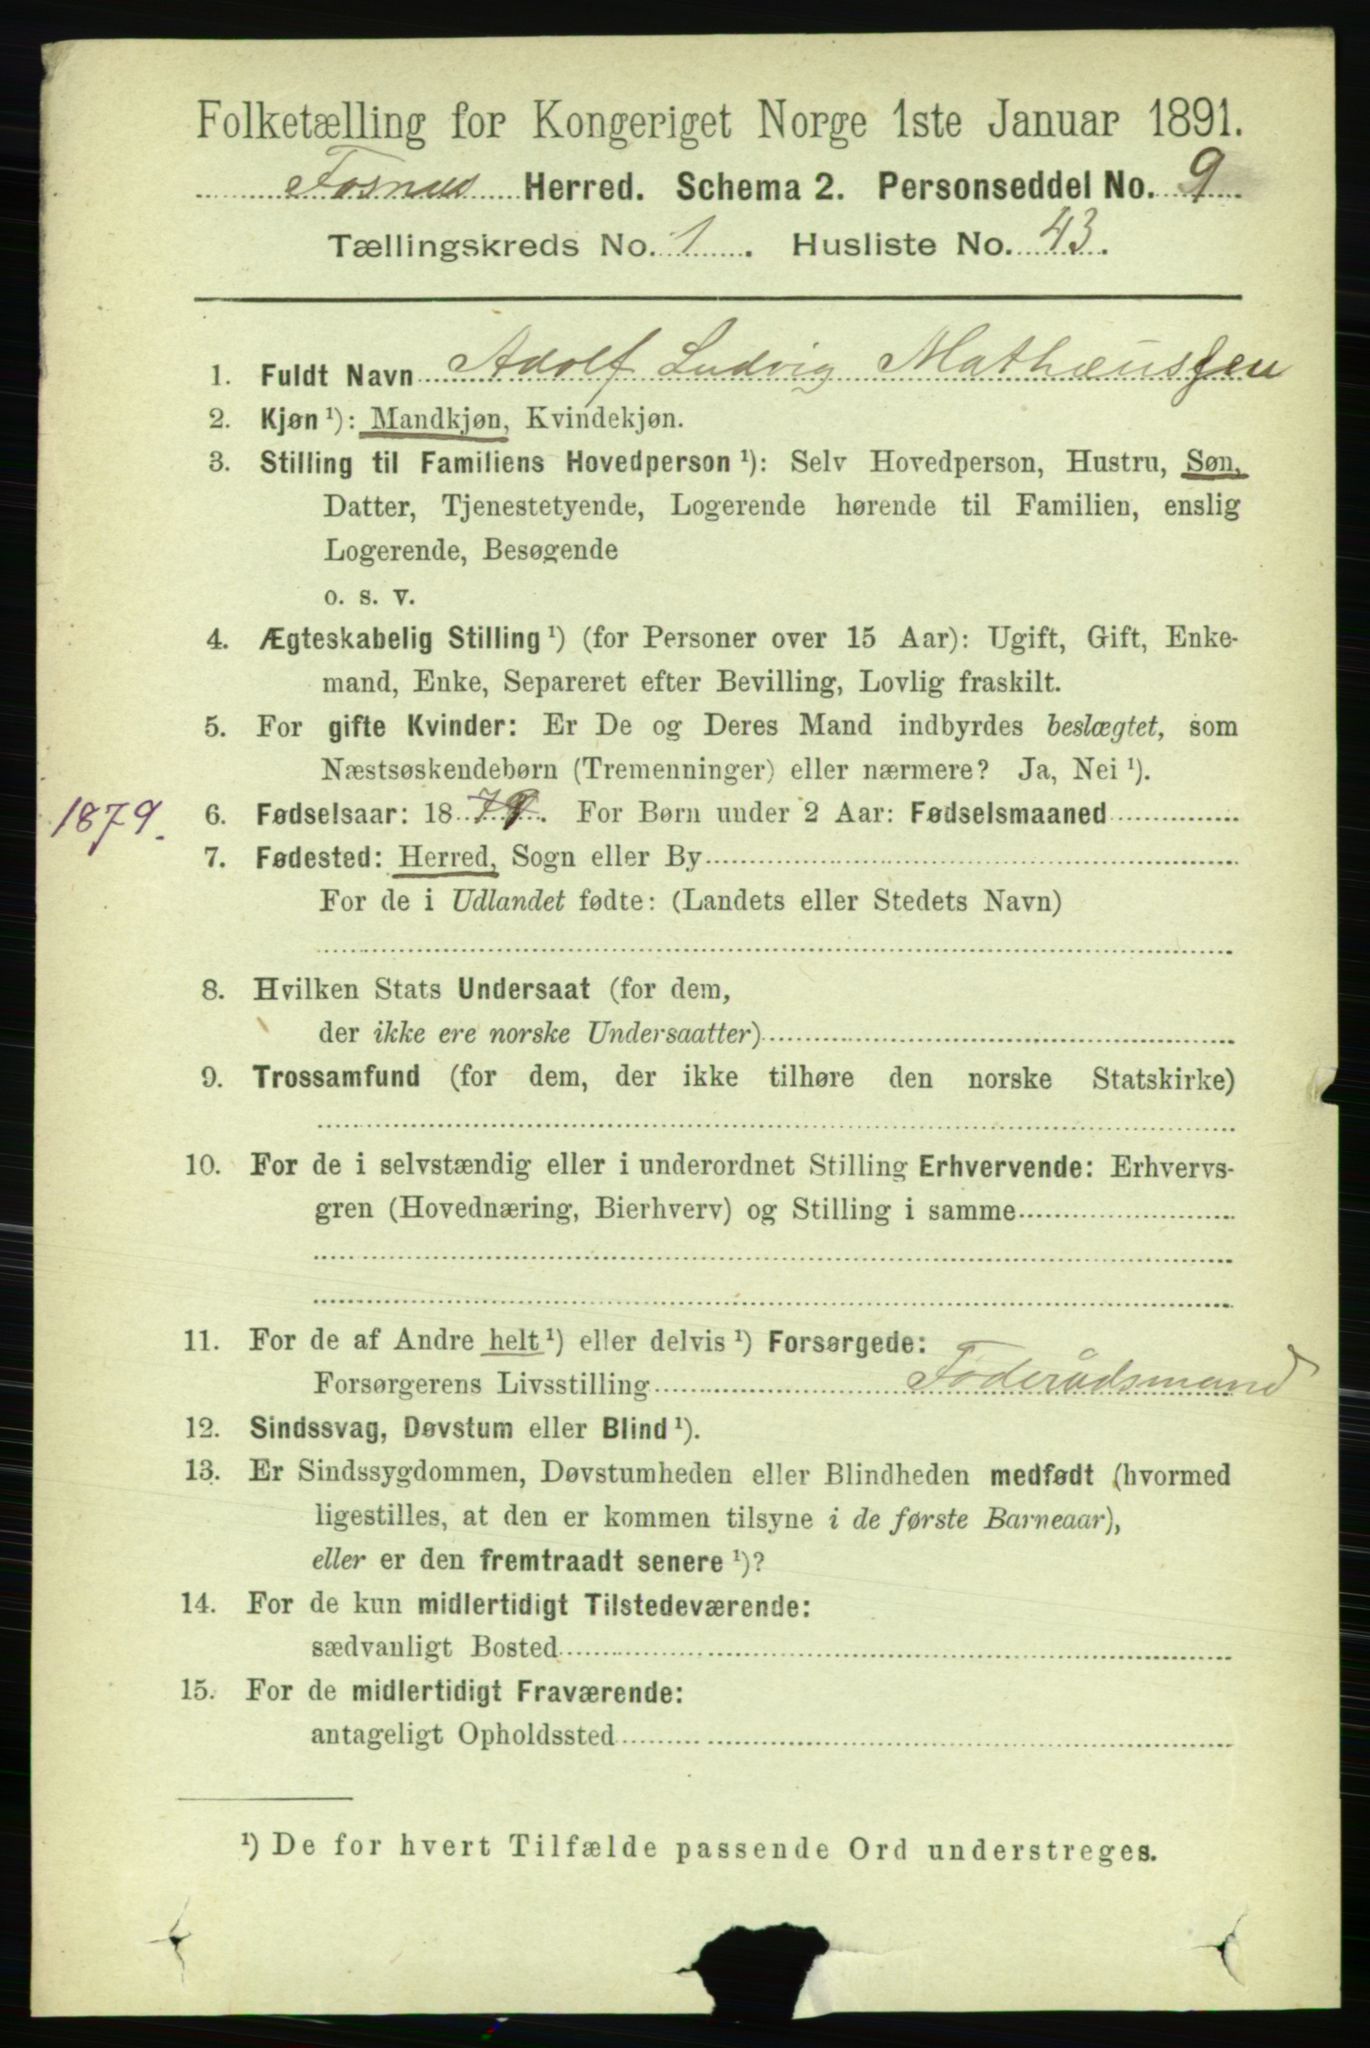 Folketælling for Kongeriget Norge 1ste Januar 1891.
Fosnes Herred. Schema 2. Personseddel No. 9.
Tællingskreds No. 1. Husliste No. 43.
1. Fuldt Navn Adolf Ludvig Mathæussen
2. Kjøn ¹): Mandkjøn, Kvindekjøn.
3. Stilling til Familiens Hovedperson ¹): Selv Hovedperson, Hustru, Søn,
Datter, Tjenestetyende, Logerende hørende til Familien, enslig
Logerende, Besøgende
o. s. v.
4. Ægteskabelig Stilling ¹) (for Personer over 15 Aar): Ugift, Gift, Enke-
mand, Enke, Separeret efter Bevilling, Lovlig fraskilt.
5. For gifte Kvinder: Er De og Deres Mand indbyrdes beslægtet, som
Næstsøskendebørn (Tremenninger) eller nærmere? Ja, Nei ¹).
1879. 6. Fødselsaar: 1879. For Børn under 2 Aar: Fødselsmaaned
7. Fødested: Herred, Sogn eller By
For de i Udlandet fødte: (Landets eller Stedets Navn)
8. Hvilken Stats Undersaat (for dem,
der ikke ere norske Undersaatter)
9. Trossamfund (for dem, der ikke tilhøre den norske Statskirke)
10. For de i selvstændig eller i underordnet Stilling Erhvervende: Erhvervs-
gren (Hovednæring, Bierhverv) og Stilling i samme
11. For de af Andre helt ¹) eller delvis ¹) Forsørgede:
Forsørgerens Livsstilling Føderådsmand
12. Sindssvag, Døvstum eller Blind ¹).
13. Er Sindssygdommen, Døvstumheden eller Blindheden medfødt (hvormed
ligestilles, at den er kommen tilsyne i de første Barneaar),
eller er den fremtraadt senere ¹)?
14. For de kun midlertidigt Tilstedeværende:
sædvanligt Bosted
15. For de midlertidigt Fraværende:
antageligt Opholdssted
¹) De for hvert Tilfælde passende Ord understreges.